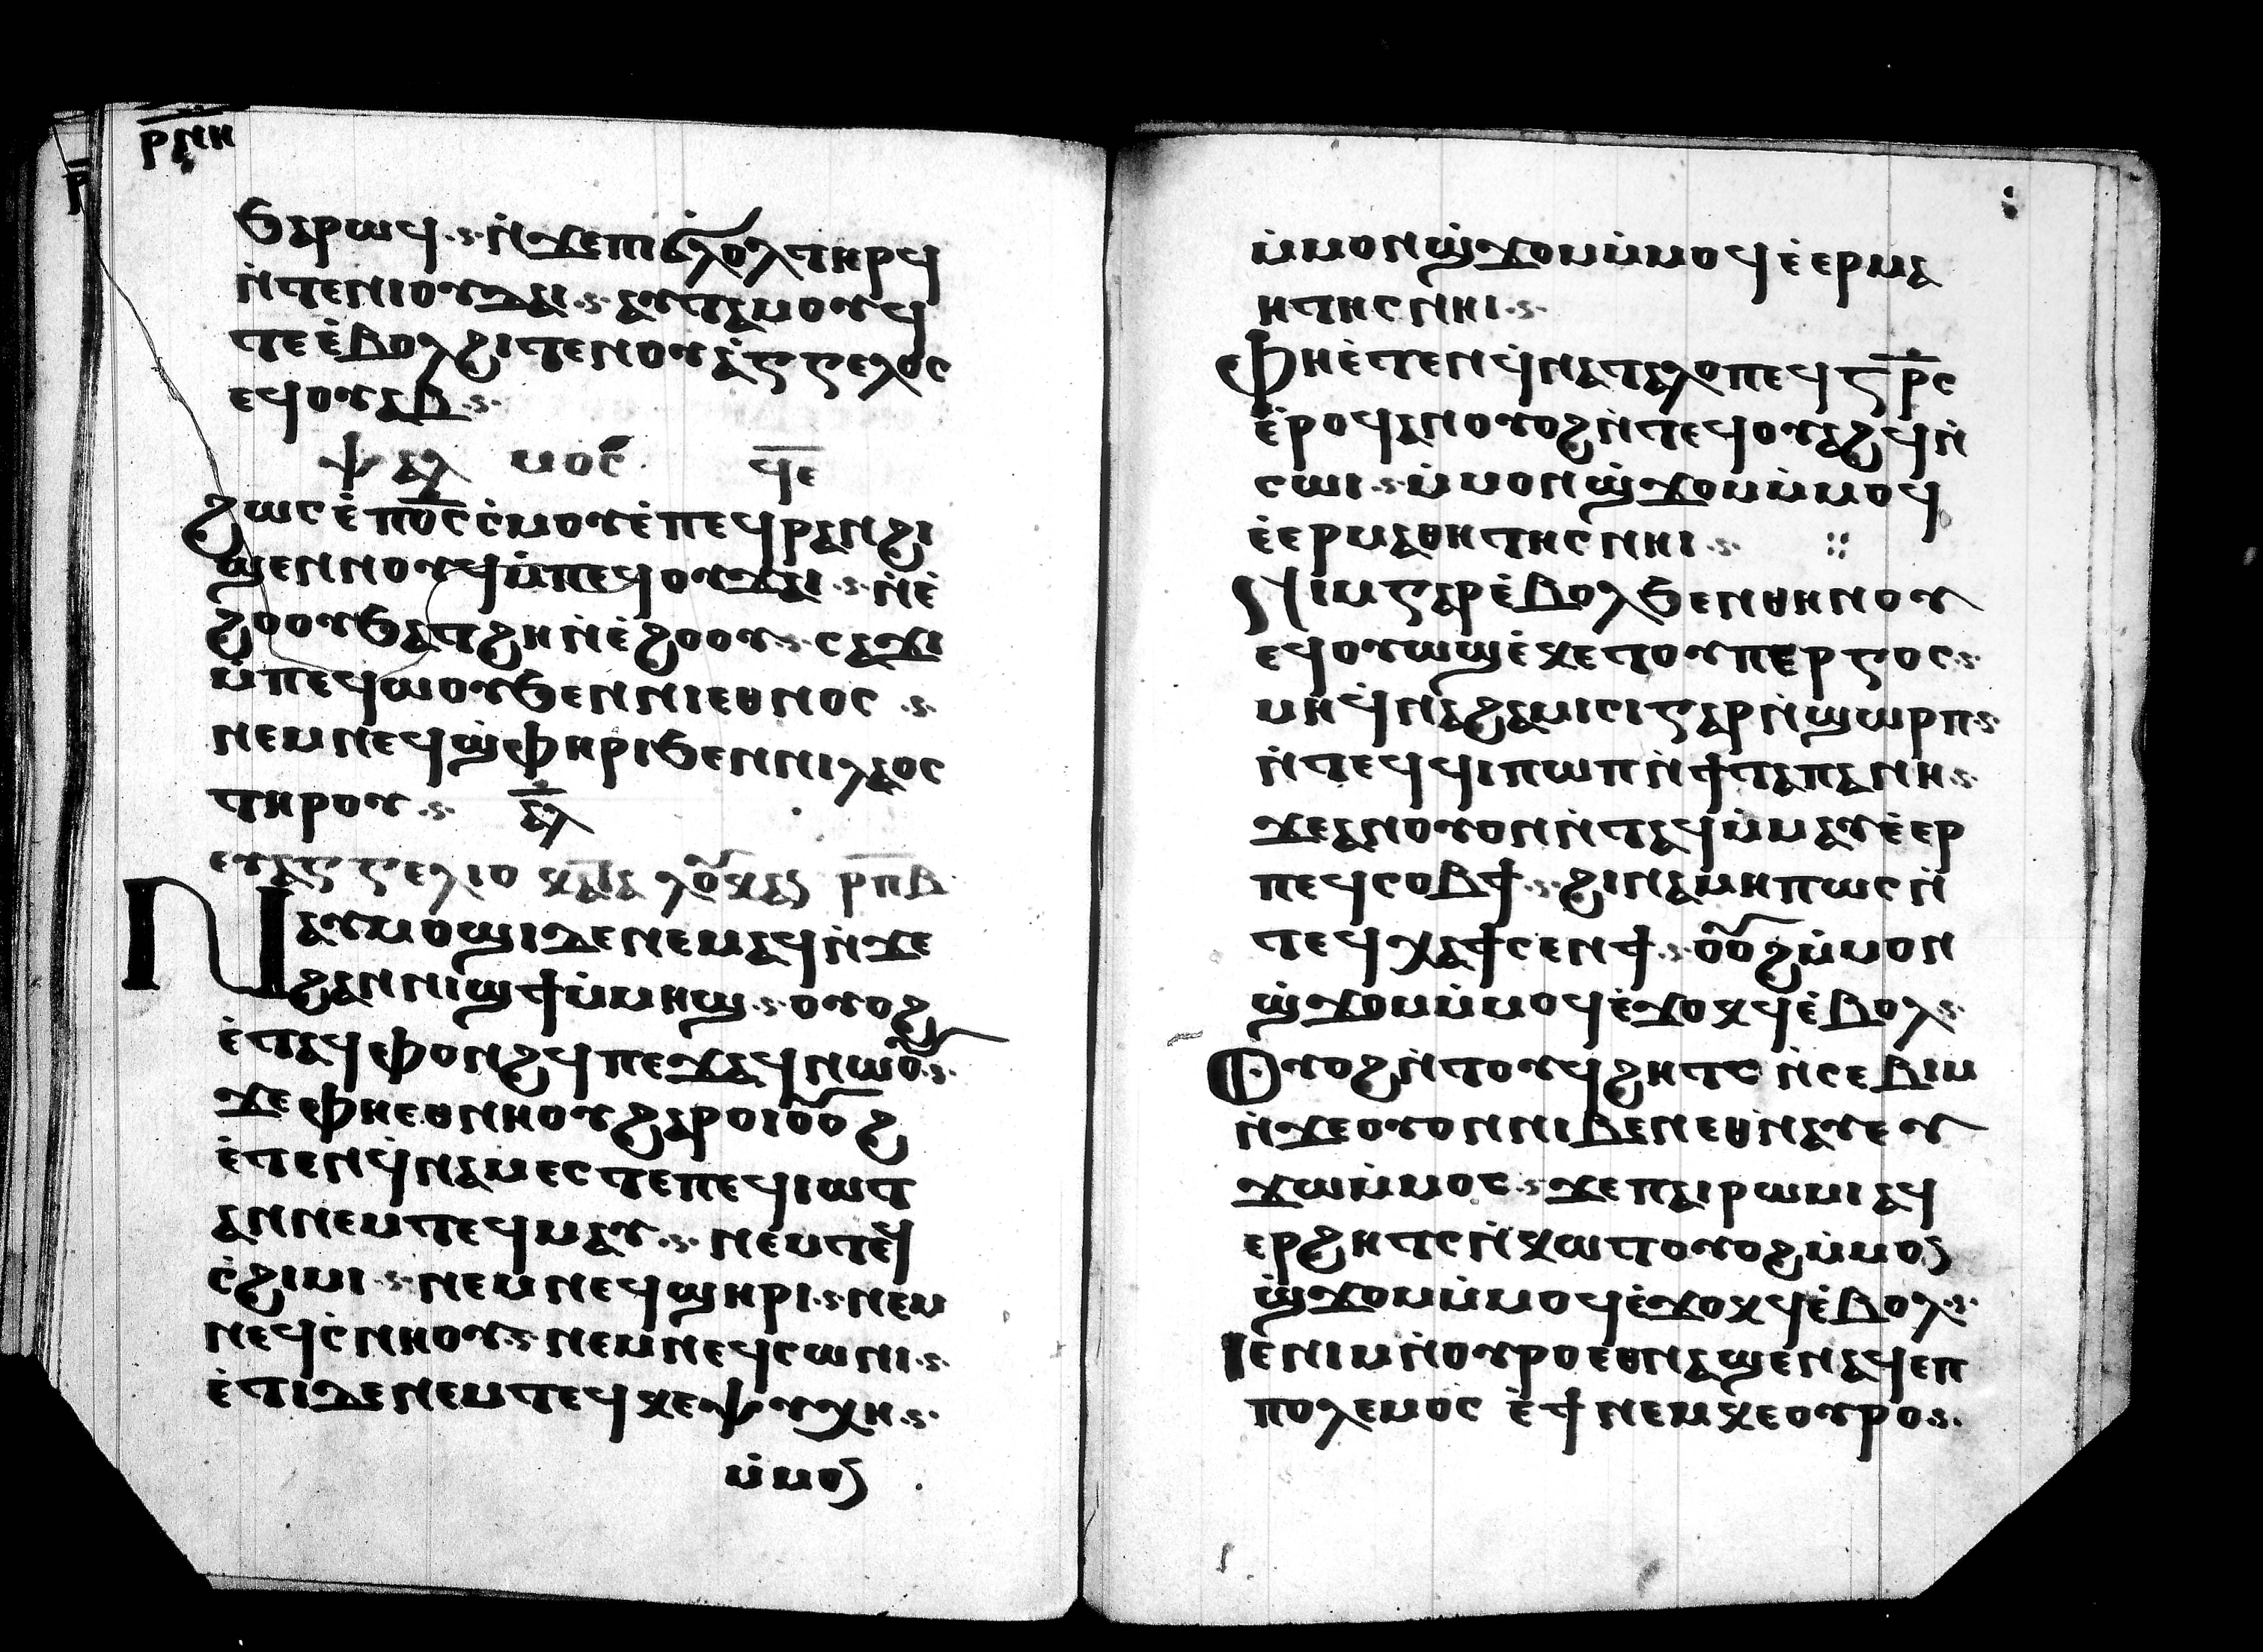 ⲣⲛⲏ
ϧⲁⲣⲱϥ·ⲥ·ⲛ̇ϫⲉⲡⲓϣ̇ⲗⲟⲗⲧⲏⲣϥ
ⲛ̇ⲧⲉⲛⲓⲟⲩⲇⲁⲓ·ⲥ·ⲁⲩⲧⲁⲙⲟⲩϥ
ⲧⲉⲉ̇ⲃⲟⲗϩⲓⲧⲉⲛⲟⲩⲁ̇ⲅⲅⲉⲗⲟⲥ
ⲉϥⲟⲩⲁⲃ·ⲥ·
ⲯⲁⲗ ⲙⲟⲥ ϥⲉ
ϩⲱⲥⲉ̇ⲡⲟ̅ⲥ̅ⲥ̇ⲙⲟⲩⲉ̇ⲡⲉϥⲣⲁⲛϩⲓ
ϣⲉⲛⲛⲟⲩϥⲙ̇ⲡⲉϥⲟⲩϫⲁⲓ·ⲥ·ⲛ̇ⲉ̇
ϩⲟⲟⲩϧⲁⲧϩⲏⲛ̇ⲉ̇ϩⲟⲟⲩ·ⲥ·ⲥⲁϫⲓ
ⲙ̇ⲡⲉϥⲱⲟⲩϧⲉⲛⲛⲓⲉⲑⲛⲟⲥ·ⲥ·
ⲛⲉⲙⲛⲉϥϣ̇ⲫⲏⲣⲓϧⲉⲛⲛⲓⲗⲁⲟⲥ
ⲧⲏⲣⲟⲩ·ⲥ· ⲁ̅ⲗ̅
ⲉⲩⲁⲅⲅⲉⲗⲓⲟ ⲕⲁⲧⲁ ⲗⲟⲩⲕⲁⲥ ⲣ̅ⲡ̅ⲃ̅
Ⲛⲁⲩⲙⲟϣⲓⲇⲉⲛⲉⲙⲁϥⲛ̇ϫⲉ
ϩⲁⲛⲛⲓϣϯⲙ̇ⲙⲏϣ·ⲥ·ⲟⲩⲟϩ
ⲉ̇ⲧⲁϥⲫⲟⲛϩϥⲡⲉϫⲁϥⲛⲱⲟⲩ·ⲥ·
ϫⲉⲫⲏⲉⲑⲛⲏⲟⲩϩⲁⲣⲟⲓⲟⲩⲟϩ
ⲉ̇ⲧⲉⲛϥ̇ⲛⲁⲙⲉⲥⲧⲉⲡⲉϥⲓⲱⲧ
ⲁⲛⲛⲉⲙⲧⲉϥⲙⲁⲩ·ⲥ·ⲛⲉⲙⲧⲉϥ
ⲥ̇ϩⲓⲙⲓ·ⲥ·ⲛⲉⲙⲛⲉϥϣⲏⲣⲓ·ⲥ·ⲛⲉⲙ
ⲛⲉϥⲥ̇ⲛⲏⲟⲩ·ⲥ·ⲛⲉⲙⲛⲉϥⲥⲱⲛⲓ·ⲥ·
ⲉ̇ⲧⲓⲇⲉⲛⲉⲙⲧⲉϥⲕⲉⲯⲩⲭⲏ·ⲥ·
ⲙ̇ⲙⲟⲥ
ⲙ̇ⲙⲟⲛϣ̇ϫⲟⲙⲙ̇ⲙⲟϥⲉ̇ⲉⲣⲙⲁ
ⲏⲧⲏⲥⲛⲏⲓ·ⲥ·
Ⲫⲏⲉ̇ⲧⲉⲛϥ̇ⲛⲁⲧⲁⲗⲟⲡⲉϥⲥ̅ⲣ̅ⲥ
ⲉ̇ⲣⲟϥⲁⲛⲟⲩⲟϩⲛ̇ⲧⲉϥⲟⲩⲁϩϥⲛ̇
ⲥⲱⲓ·ⲥ·ⲙ̇ⲙⲟⲛϣ̇ϫⲟⲙⲙ̇ⲙⲟϥ
ⲉ̇ⲉⲣⲙⲁⲑⲏⲧⲏⲥⲛⲏⲓ·ⲥ· ⁘
Ⲛⲓⲙⲅⲁⲣⲉ̇ⲃⲟⲗϧⲉⲛⲑⲏⲛⲟⲩ
ⲉϥⲟⲩⲱϣⲉ̇ⲕⲉⲧⲟⲩⲡⲉⲣⲅⲟⲥ·ⲥ·
ⲙⲏϥ̇ⲛⲁϩⲉⲙⲓⲥⲓⲅⲁⲣⲛ̇ϣⲱⲣⲡ·ⲥ·
ⲛ̇ⲧⲉϥϥⲓⲡⲱⲡⲛ̇ϯⲧⲁⲡⲁⲛⲏ·ⲥ·
ϫⲉⲁⲛⲟⲩⲟⲛⲛ̇ⲧⲁϥⲙ̇ⲙⲁⲩⲉ̇ⲉⲣ
ⲡⲉϥⲥⲟⲃϯ·ⲥ·ϩⲓⲛⲁⲙⲏⲡⲱⲥⲛ̇
ⲧⲉϥⲭⲁϯⲥⲉⲛϯ·ⲥ·ⲟⲩⲟϩⲙ̇ⲙⲟⲛ
ϣ̇ϫⲟⲙⲙ̇ⲙⲟϥⲉ̇ϫⲟⲕϥⲉ̇ⲃⲟⲗ·ⲥ·
Ⲟⲩⲟϩⲛ̇ⲧⲟⲩϥϩⲏⲧⲥ ⲛ̇ⲥⲉⲃⲓⲙ
ⲛ̇ϫⲉⲟⲩⲟⲛⲛⲓⲃⲉⲛⲉⲑⲛ̇ⲁⲩⲉⲩ
ϫⲱⲙ̇ⲙⲟⲥ·ⲥ·ϫⲉⲡⲁⲓⲣⲱⲙⲓⲁϥ
ⲉⲣϩⲏⲧⲥⲛ̇ⲕⲱⲧⲟⲩⲟϩⲙ̇ⲙⲟⲥ
ϣ̇ϫⲟⲙⲙ̇ⲙⲟϥⲉ̇ϫⲟⲕϥⲉ̇ⲃⲟⲗ·ⲥ·
Ⲓⲉⲛⲓⲙⲛ̇ⲟⲩⲣⲟⲉⲑⲛⲁϣⲉⲛⲁϥⲉⲡ
ⲡⲟⲗⲉⲙⲟⲥ ⲉ̇ϯⲛⲉⲙⲕⲉⲟⲩⲣⲟ·ⲥ·